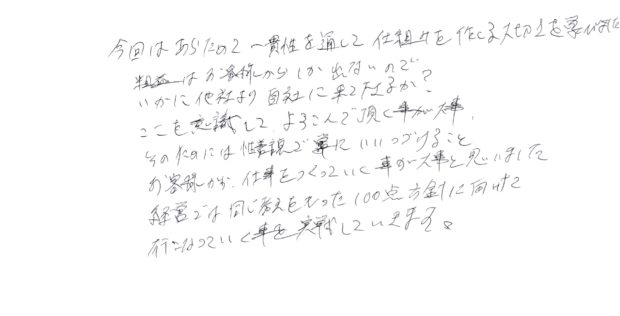 今回はあらためて一貫性を通して仕組みを作る大切さを学びました
粗益はお客様からしか出ないので
いかに他社より自社に来て下さるか?
ここを意識して、よろこんで頂く事が大事
そのためには性善説で事にいいつづけること
お客様が、仕事をつくっていく事が大事と思いました
経営では同じ考えをもった100点方針に向けて
行なっていく事を実戦していきます。